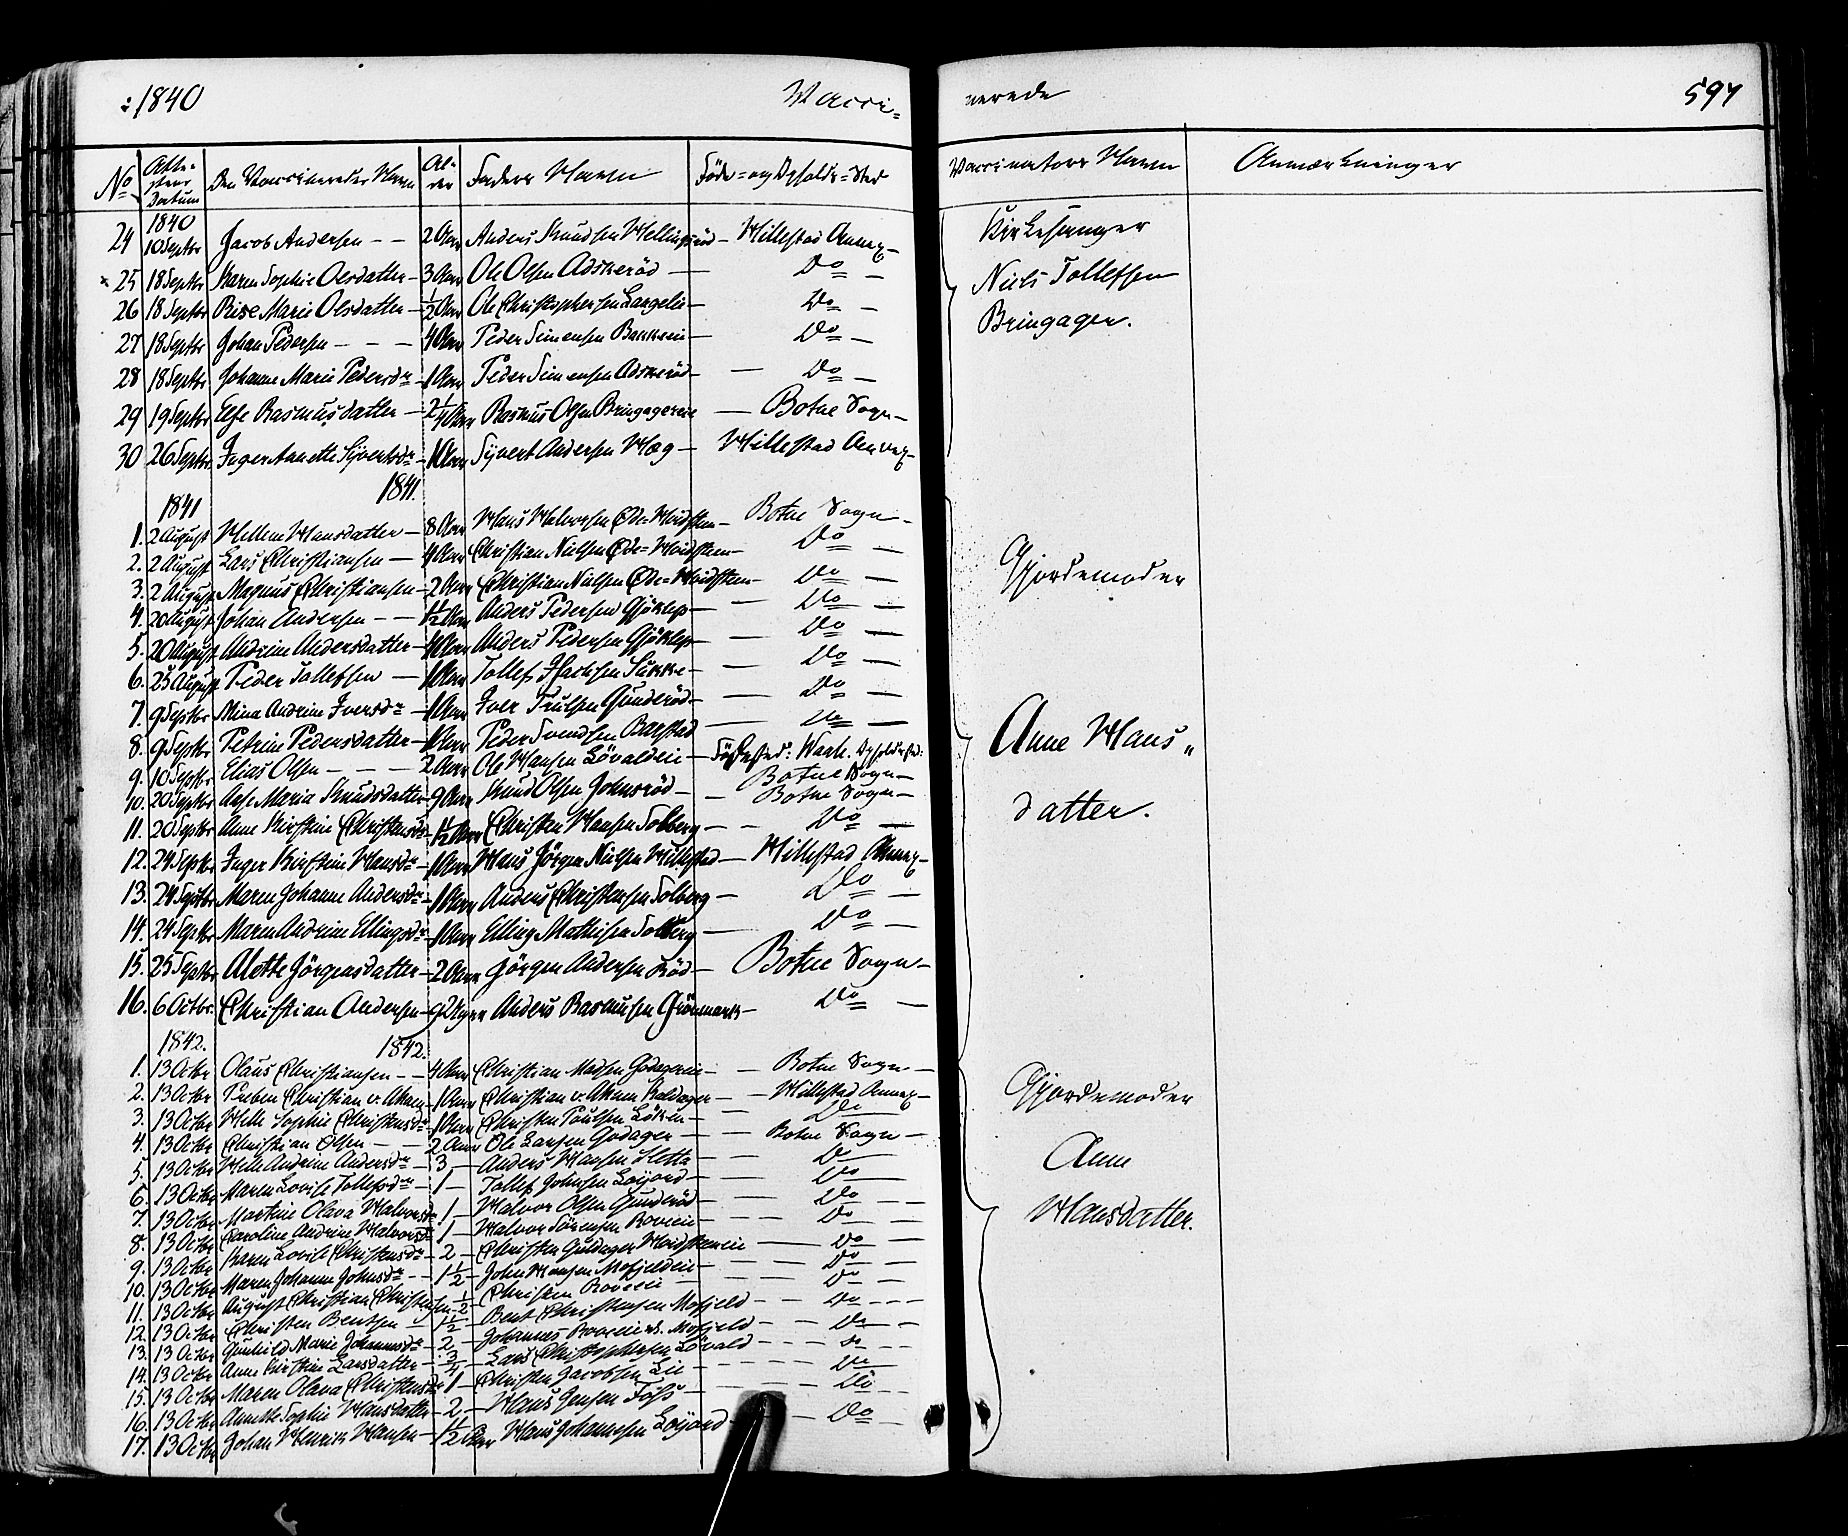 :1840 Vacci= nerede 597
No Attestens Datum Den Vaccineredes Navn Alder Faders Navn Föde= og Opholds=Sted Vaccinators Navn Anmærkninger
1840
24 10 Septbr Jacob Andersen - - 2 Aar Anders Knudsen Hellingsröd - Hillestad Annex - Kirkesanger
25 18 Septbr Karen Sophie Olsdatter - 3 Aar Ole Olsen Adskeröd - Do - Niels Tollefsen
26 18 Septbr Marie Olsdatter - 1/2 Aar Ole Christophersen Langelie - Do - Bringager.
27 18 Septbr Johan Pedersen - - - 4 Aar Peder Simensen Bakkeeie - Do -
28 18 Septbr Johanne Marie Pedersdr - 1 Aar Peder Simensen Adskeröd - Do -
29 19 Septbr Else Rasmusdatter - 2 1/4 Aar Rasmus Olsen Bringagereie - Botne Sogn -
30 26 Septbr Inger Annette Syvertsdr - 1 Aar Syvert Andersen Hæg - Hillestad Annex -
1841 1841.
1. 2 August Hellene Hansdatter - 8 Aar Hans Halvorsen Öde=Hvidsteen - Botne Sogn -
2. 2 August Lars Christiansen - 4 Aar Christian Nielsen Öde=Hvidsteen - Do -
3. 2 August Magnus Christiansen - 2 Aar Christian Nielsen Öde=Hvidsteen - Do - Gjordemoder
4. 20 August Johan Andersen - - 1 1/2 Aar Anders Pedersen Gjöklep - Do -
5. 20 August Andrine Andersdatter - 4 Aar Anders Pedersen Gjöklep - Do -
6. 25 August Peder Tollefsen - 1 Aar Tollef Sukke - Do -
7. 9 Septbr Mina Andrine Iversdr - 1 Aar Iver Trulsen Gunderöd - Do -
8. 9 Septbr Petrine Pedersdatter - 1 Aar Peder Svendsen Barstad - Do - Anne Hans=
9. 10 Septbr Elias Olsen - - - 2 Aar Ole Hansen Lövaldeie - Födested: Opholdsted: Botne Sogn -
10. 20 Septbr Anne Maria Knudsdatter - 9 Aar Knud Olsen Johnsröd - Botne Sogn - datter.
11. 20 Septbr Anne Kirstine Christensdr - 1 1/2 Aar Christen Hansen Solberg - Do -
12. 24 Septbr Inger Kirstine Hansdr - 1 Aar Hans Jörgen Nielsen Hillestad - Hillestad Annex -
13. 24 Septbr Maren Johanne Andersdr - 1 Aar Anders Christensen Solberg - Do -
14. 24 Septbr Maren Andrine Ellingsdr - 1 Aar Elling Mathisen Solberg - Do -
15. 25 Septbr Alette Jörgensdatter - 2 Aar Jörgen Andersen Röd - Botne Sogn -
16. 6 Octbr Christian Andersen - 9 Uger Anders Rasmusen Grönmark - Do -
1842. 1842.
1. 13 Octbr Olaus Christiansen - - 4 Aar Christian Madsen Godagereie - Botne Sogn -
2. 13 Octbr Preben Christian v. Aken - 1 Aar Christian v. Aken Haldager - Hillestad Annex - Gjordemoder
3. 13 Octbr Helle Sophie Christensdr - 1 Aar Christen Poulsen Löken - Do
4. 13 Octbr Christian Olsen - - 2 Aar Ole Larsen Godager - Botne Sogn -
5. 13 Octbr Helle Andrine Andersdr - 3 - Anders Hansen Sletta - Do Anne
6. 13 Octbr Maren Lovise Tollefsdr - 1 - Tollef Johnsen Löyjord - Do
7. 13 Octbr Martine Olava Halvorsdr 1 - Halvor Olsen Gunderöd - Do - Hansdatter.
8. 13 Octbr Caroline Andrine Halvorsdr - 1 - Halvor Sörensen Roveeie - Do -
9. 13 Octbr Karen Lovise Christensdr - 2 - Christen Guldager Hvidsteneie - Do -
10. 13 Octbr Maren Johanne Johnsdr - - 1 1/2 - John Hansen Mofjeldeie - Do -
11. 13 Octbr August Christian Christensen - 1/2 - Christen Roveeie - Do -
12. 13 Octbr Christen Bentsen - 1 1/2 - Bent Christensen Mofjeld - - Do - - -
13. 13 Octbr Gunhild Marie Johannesdr - 2 - Johannes Mofjeld - - Do - -
14. 13 Octbr Anne Kirstine Larsdatter - 3/4 - Lars Christophersen Lövald - - - do - -
15. 13 Octbr Maren Olava Christensdr 1 - Christen Jacobsen Lie - - - - Do
16. 13 Octbr Annette Sophie Hansdatter - 2 - Hans Jensen Foss - - - Do - -
17. 13 Octbr Johan Henrik Hansen - 1 1/2 Aar Hans Johannesen Löyjord - - - Do -